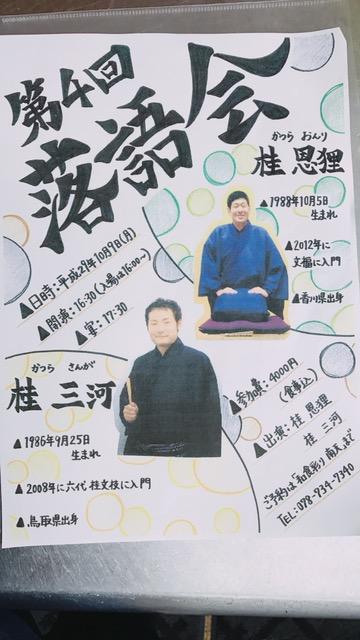 第4回
落語会
かつら おんり
桂 恩狸
▲1988年10月5日
生まれ
▲2012年に
文福に入門
▲香川県出身
▲日時:平成29年10月9日(月)
▲開演:16:30(入場は16:00~)
▲宴:17:30
かつら さんが
桂 三河
▲1986年9月25日
生まれ
▲2008年に六代 桂文枝に入門
▲鳥取県出身
▲参加費:4000円
(食事込)
▲出演:桂 恩狸
桂 三河
ご予約は「和食彩り 南天」まで
TEL:078-734-7340